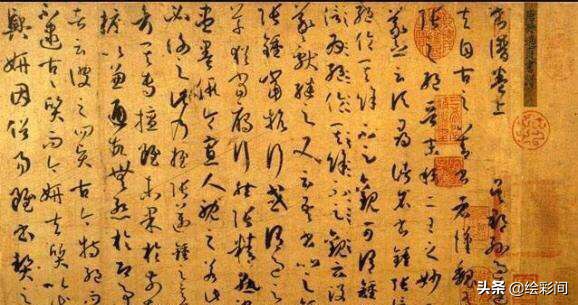 書譜卷上 吳郡孫過
夫自古之善書者漢魏
張之絕晉末稱二王之妙
羲之云頃尋諸名書鍾張
絕倫其餘不足觀可謂鍾
信為絕倫其餘不足觀云沒
羲獻繼之又云吾書比之
張鍾當抗行或謂過之
草猶當鴈行然張精熟
盡墨假令寡人耽之若
必謝之此乃推張邁鍾之意
考其專擅雖未果於前
摭以兼通故無慚於即事
者云彼之四賢古今特絕而
不逮古古質而今妍夫質以
興妍因俗易雖書契之
头条 @绘彩间